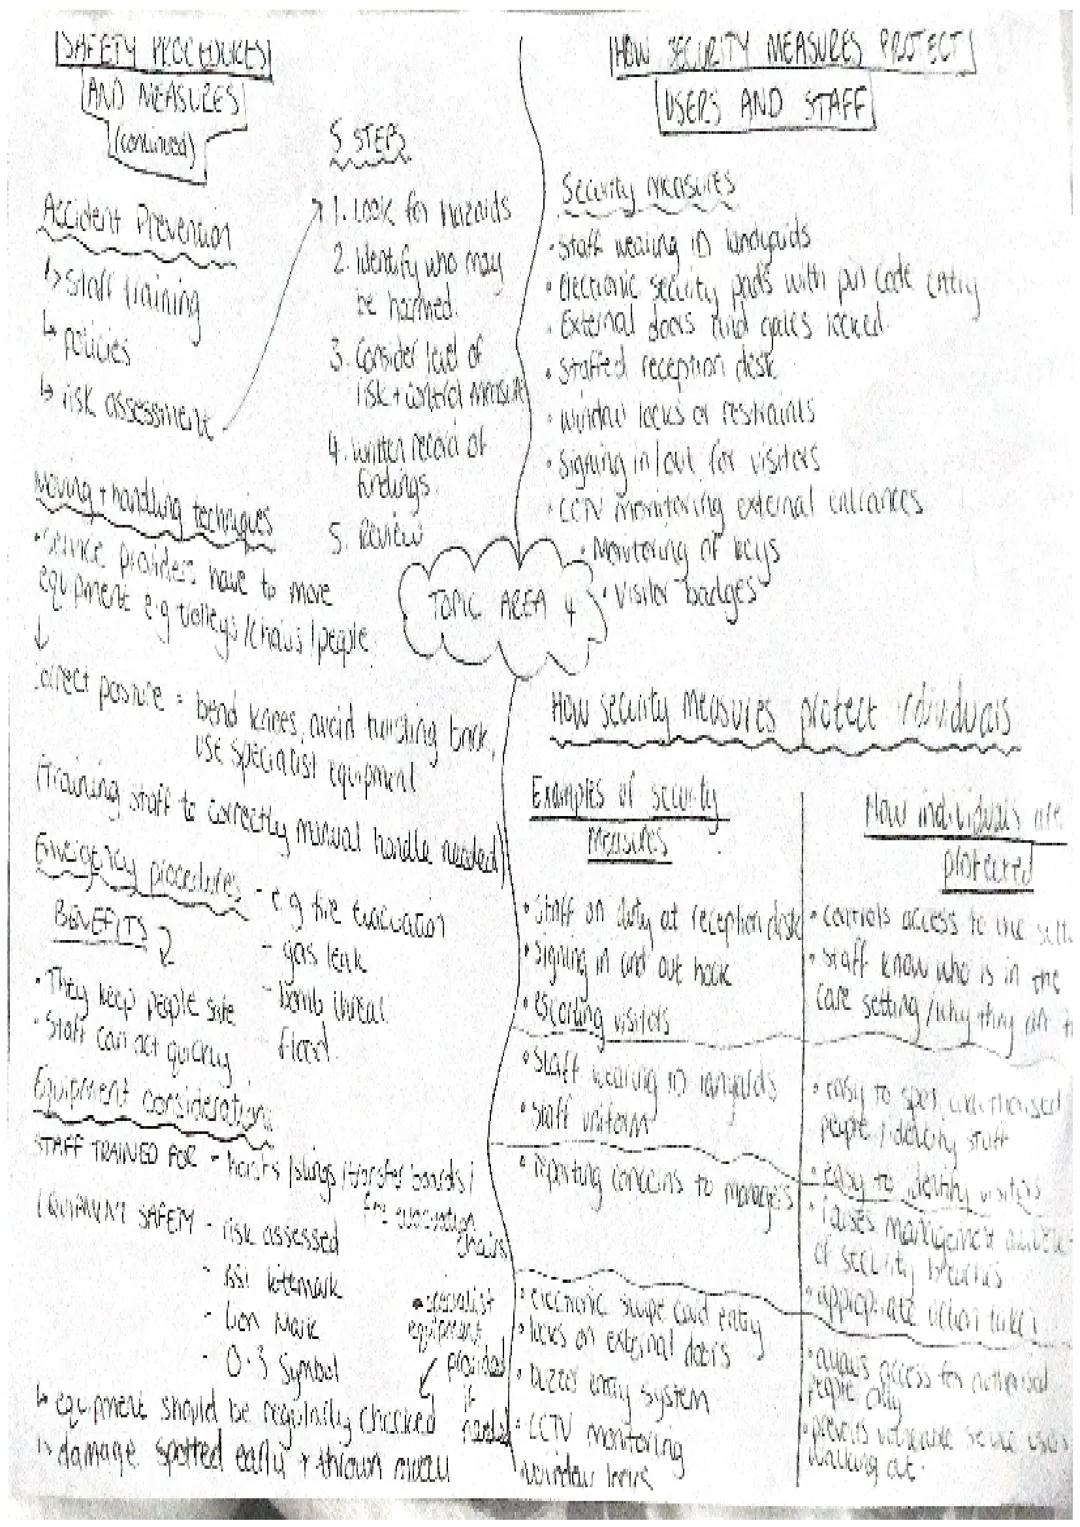 SAFETY PROCEDURES
AND MEASURES
(continued)
Accident Prevention
↳ staff training
↳ policies
↳ risk assessment
5 STEPS
1. Look for hazards
2. Identify who may
be harmed.
3. Consider level of
risk + control measure
4. written record of
findings.
5. Review
Moving + handling techniques
• Service providers have to move
equipment e.g trolleys / chairs / people
↓
correct posture = bend knees, avoid twisting back,
use specialist equipment
(training staff to correctly manual handle needed)
Emergency procedures - e.g fire evacuation
- gas leak
- bomb threat
- flood.
BENEFITS
• They keep people safe
• Staff can act quickly
Equipment considerations
STAFF TRAINED FOR - hoists / slings / transfer boards /
fire evacuation
chairs
EQUIPMENT SAFETY - risk assessed
- BSI kitemark
- Lion Mark
- 0-3 symbol
↳ equipment should be regularly checked
↳ damage spotted early + thrown away
• specialist
equipment
provided
if
needed
TOPIC AREA 4
HOW SECURITY MEASURES PROTECT
USERS AND STAFF
Security measures
• Staff wearing ID landyards
• Electronic security pads with pin code entry
• External doors and gates locked
• Staffed reception desk
• window locks or restraints
• Signing in/out for visitors
• CCTV monitoring external entrances
• Monitoring of keys
• Visitor badges
How security measures protect individuals
Examples of security
measures
How individuals are
protected
• Staff on duty at reception desk
• Signing in and out book
• escorting visitors
• controls access to the
• staff know who is in the
care setting / why they are
• Staff wearing ID lanyards
• Staff uniform
• easy to spot unauthorised
people / identify staff
• easy to identify visitors
• reporting concerns to managers
• raises management
of security breaches
• appropriate action taken
• electronic swipe card entry
• locks on external doors
• buzzer entry system
• CCTV monitoring
• window locks
• allows access for authorised
people only
• prevents vulnerable service users
walking out.